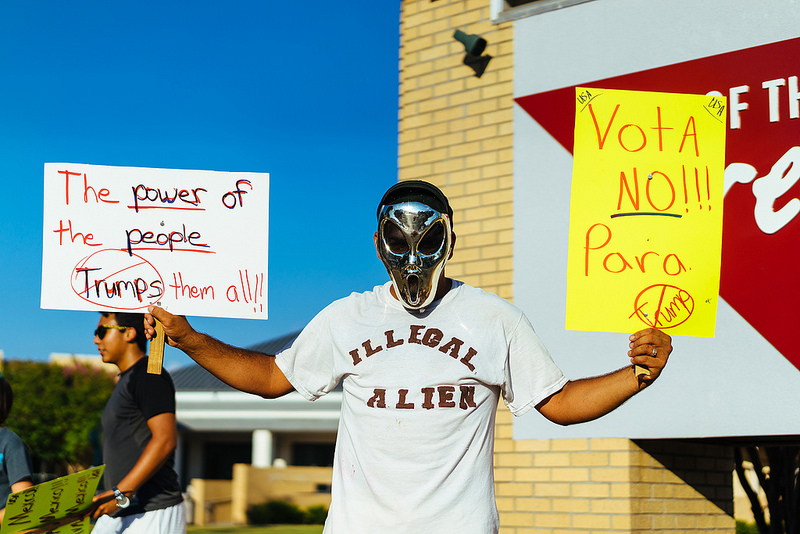 The power of
the people
Trumps them all!!
USA
USA
Vota
NO!!!
Para
Trump
ILLEGAL
ALIEN
OF TH
re
Mexico